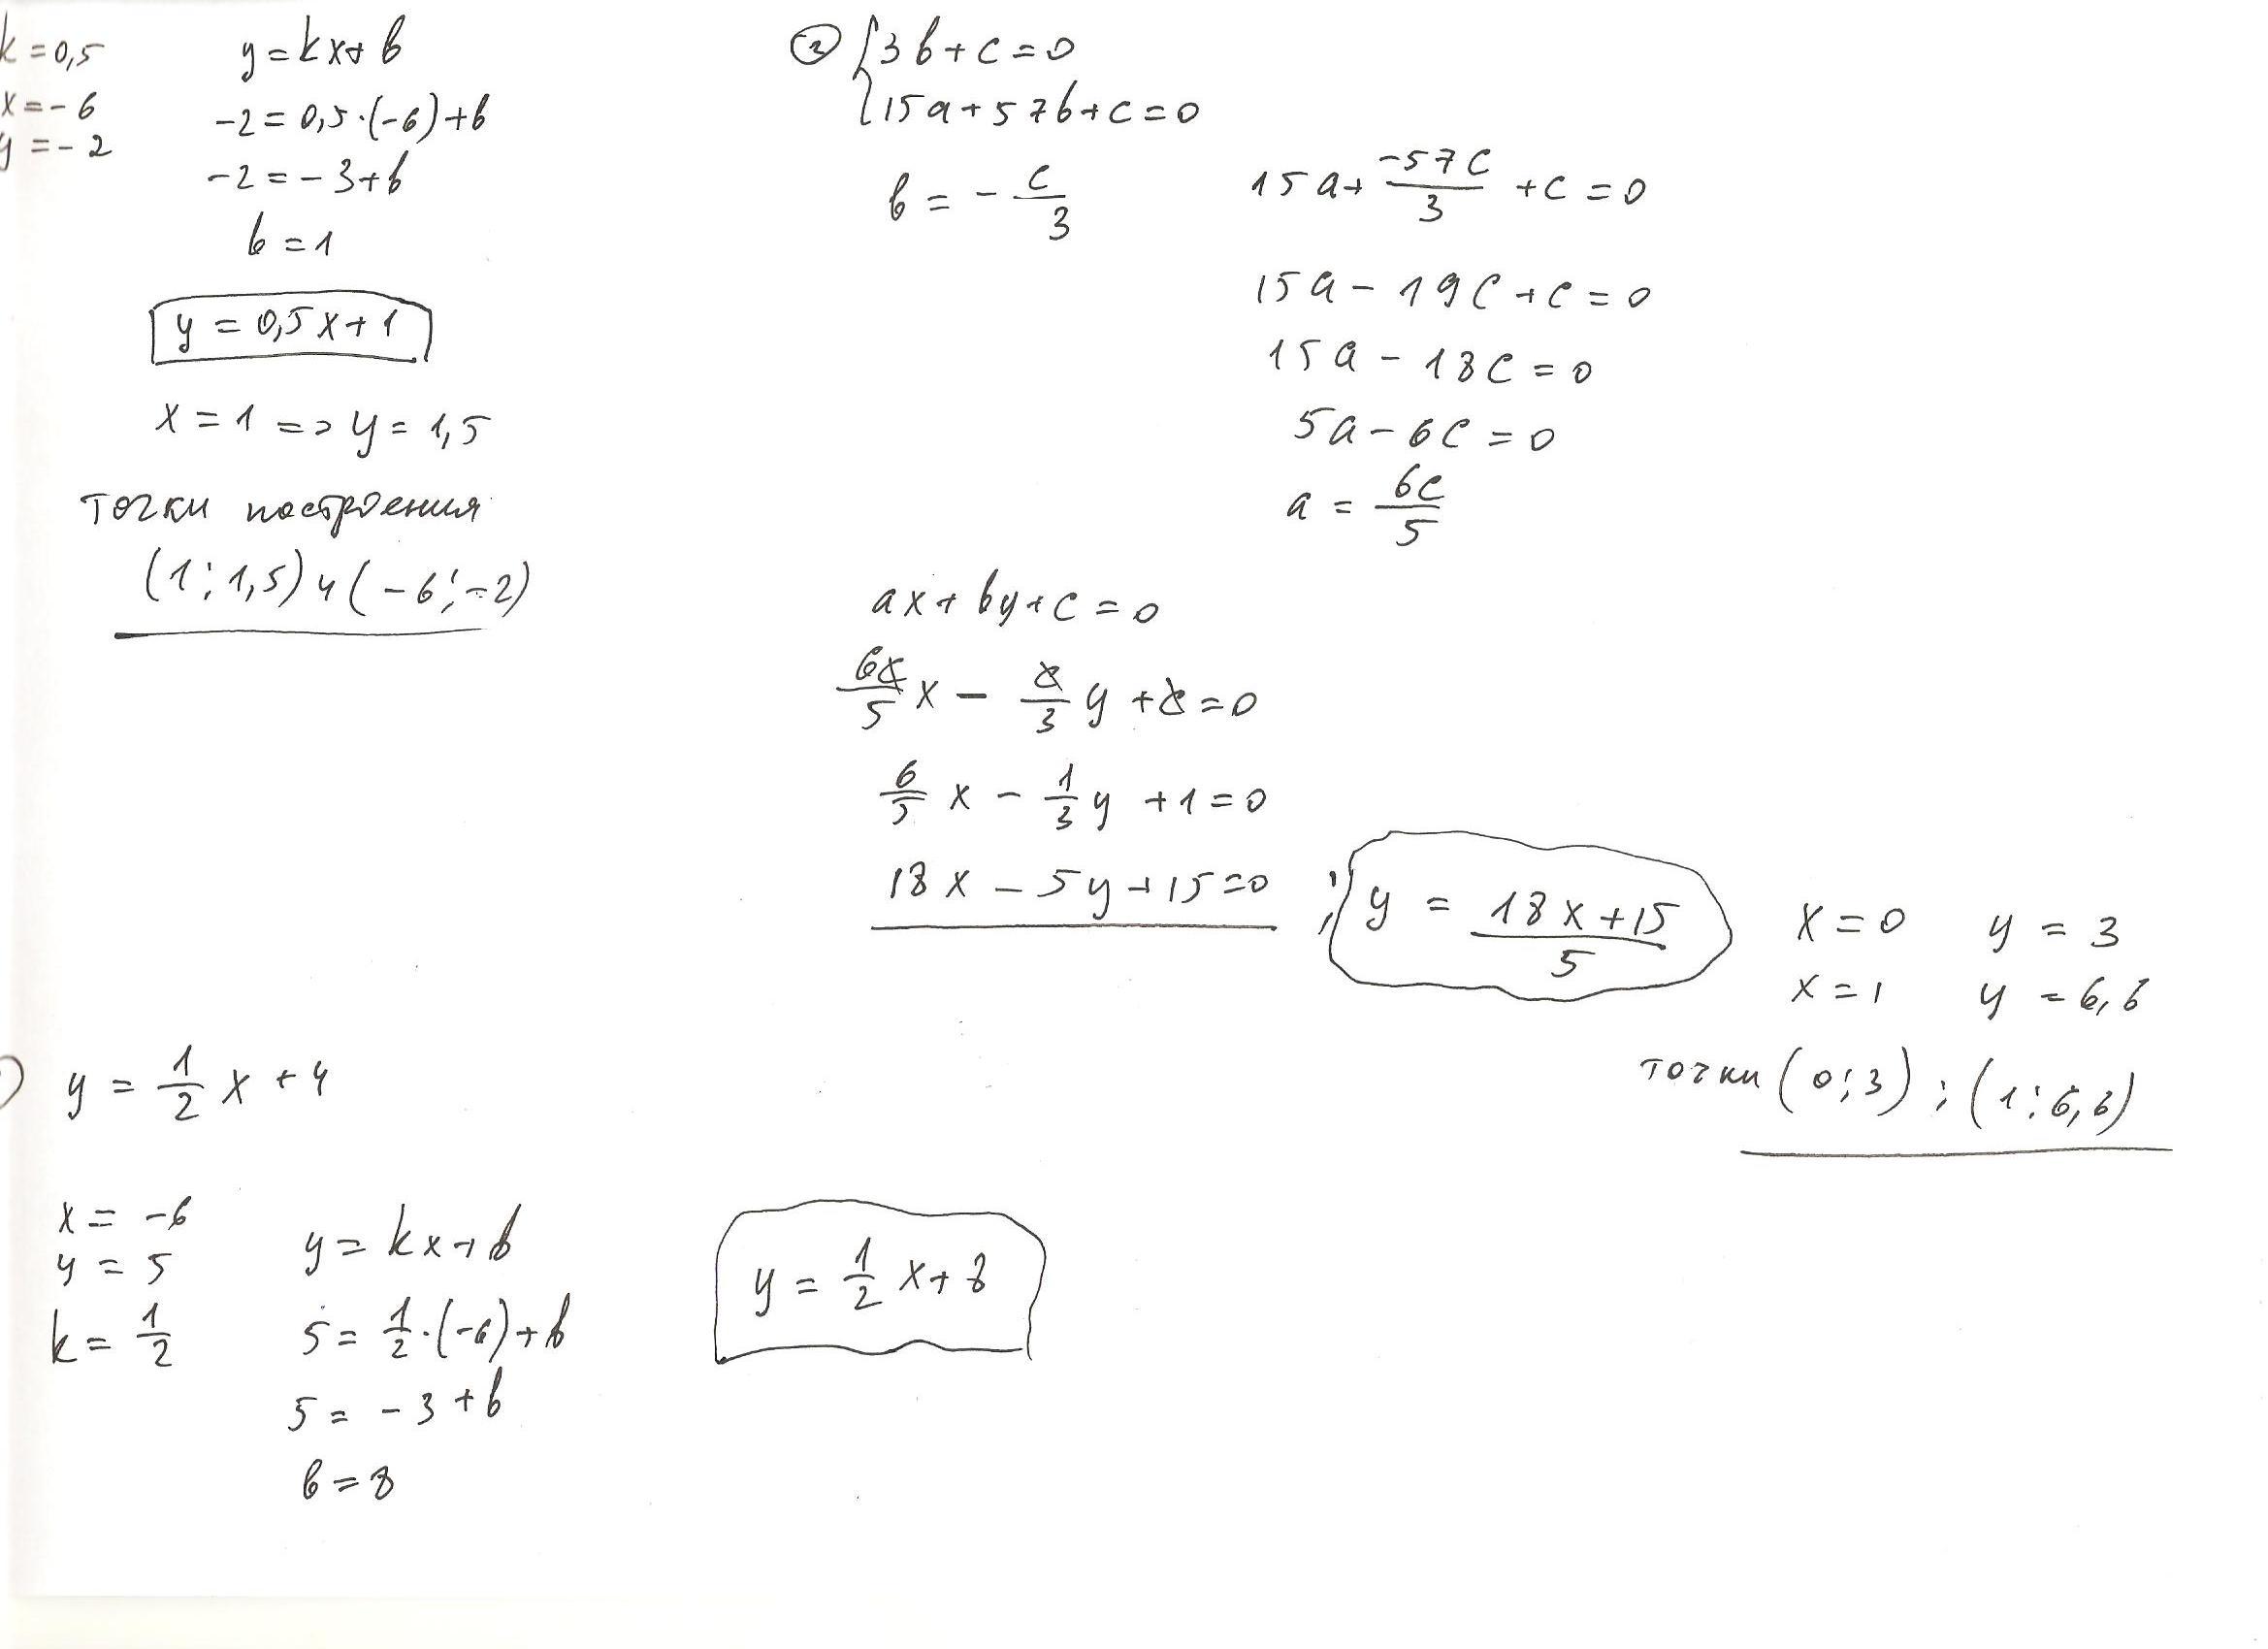 k = 0,5
x = - 6
y = - 2
y = kx + b
-2 = 0,5·(-6)+b
-2 = - 3+b
b = 1
y = 0,5x+1
x = 1 => y = 1,5
точки построения
(1; 1,5) и (-6; -2)
② { 3b + c = 0
15a + 57b + c = 0
b = - c/3
15a + -57c/3 + c = 0
15a - 19c + c = 0
15a - 18c = 0
5a - 6c = 0
a = 6c/5
ax + by + c = 0
6c/5 x - c/3 y + c = 0
6/5 x - 1/3 y + 1 = 0
18x - 5y + 15 = 0 ; y = 18x+15/5
x = 0 y = 3
x = 1 y = 6,6
точки (0; 3) ; (1; 6,6)
) y = 1/2 x + 4
x = -6
y = 5
k = 1/2
y = kx + b
5 = 1/2 · (-6) + b
5 = - 3 + b
b = 8
y = 1/2 x + 8